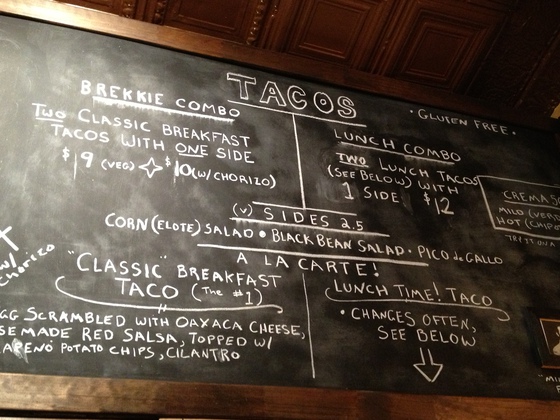 TACOS
BREKKIE COMBO
TWO CLASSIC BREAKFAST
TACOS WITH ONE SIDE
$9 (VEG) $10 (W/ CHORIZO)
• GLUTEN FREE •
LUNCH COMBO
TWO LUNCH TACOS
(SEE BELOW) WITH
1 SIDE $12
CREMA
MILD
HOT
(V) SIDES 2.5
CORN (ELOTE) SALAD • BLACK BEAN SALAD • PICO de GALLO
A LA CARTE!
W/
CHORIZO
"CLASSIC" BREAKFAST
TACO (The #1)
GG SCRAMBLED WITH OAXACA CHEESE,
SEMADE RED SALSA, TOPPED W/
APEÑO POTATO CHIPS, CILANTRO
LUNCH TIME! TACO
• CHANGES OFTEN,
SEE BELOW